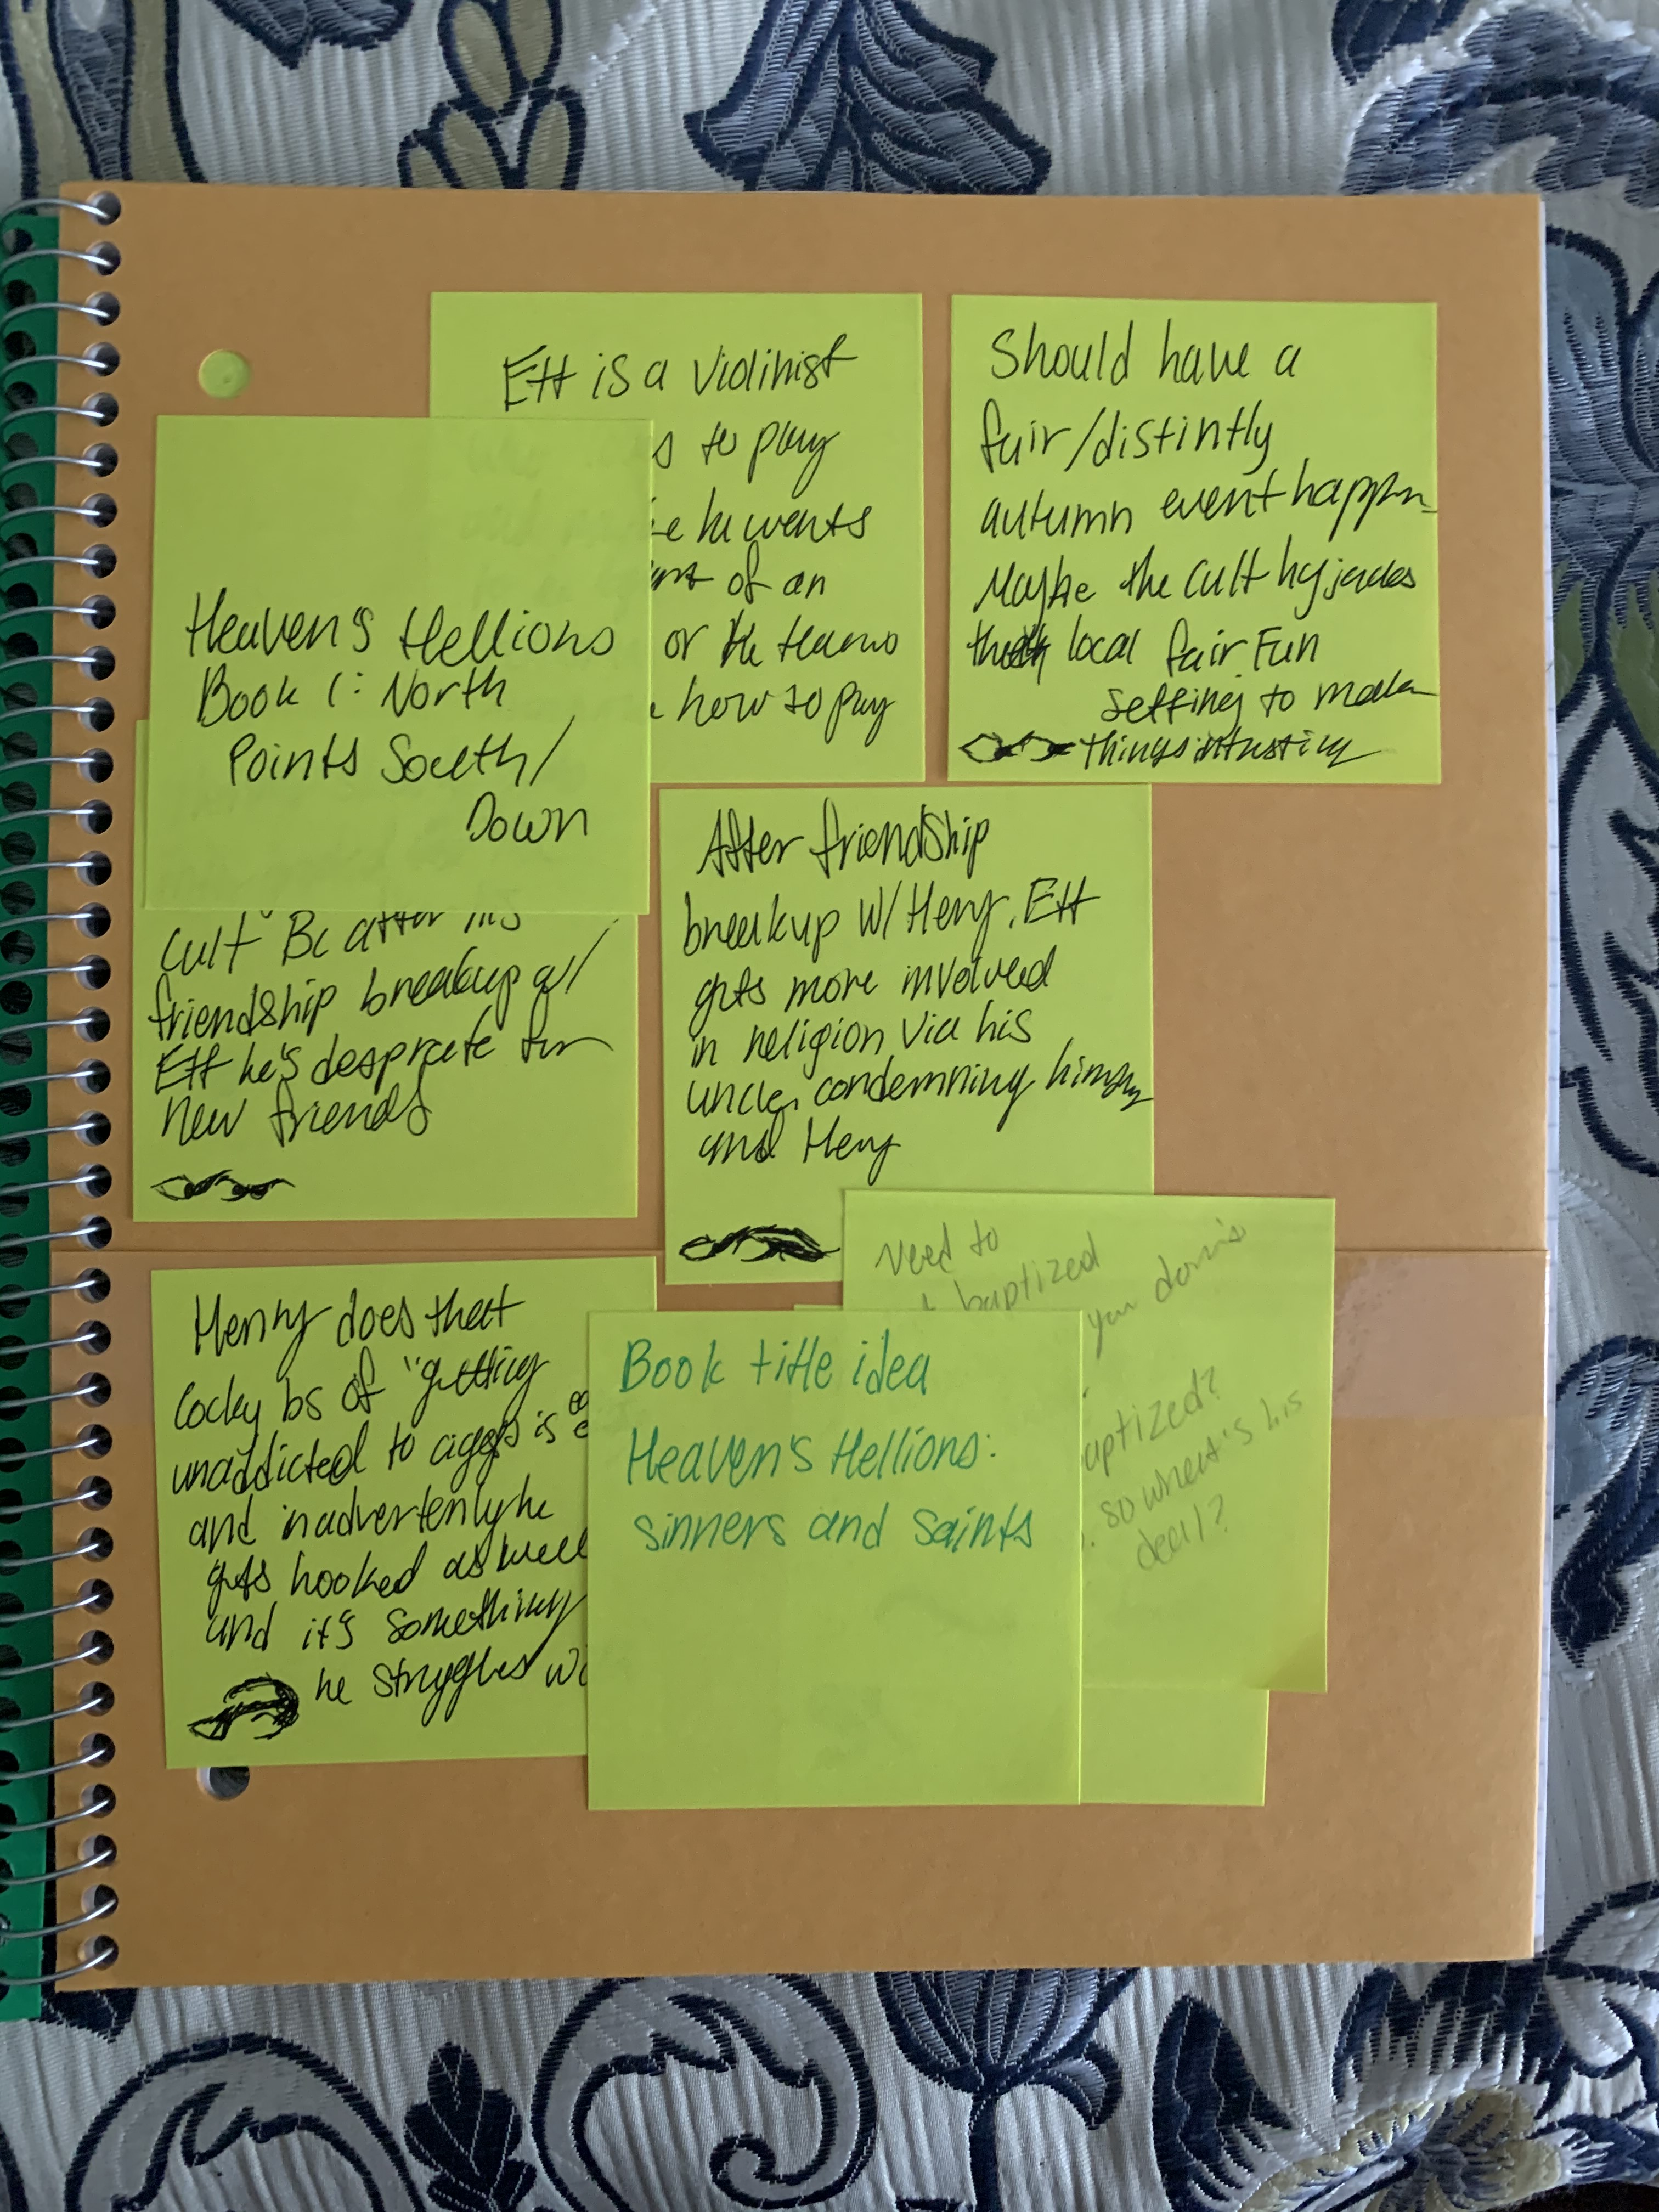 Ett is a violinist
to play
he wants
of an
or the
how to play
Should have a
fair/distintly
autumn event happen
Maybe the cult hyjacks
local fair Fun
setting to make
things
Heaven's Hellions
Book 1: North
Points South/
Down
Cult Bc after his
friendship breakup w/
Ett he's desprate for
new friends
After friendship
breakup w/ Henry, Ett
gets more involved
in religion via his
uncle, condemning himself
and Henry
Need to
baptized
you
aptized?
so what's his
deal?
Henry does that
cocky bs of "getting
unaddicted to ciggs is
and inadvertenly he
gets hooked as well
and it's something
he struggles
Book title idea
Heaven's Hellions:
sinners and saints